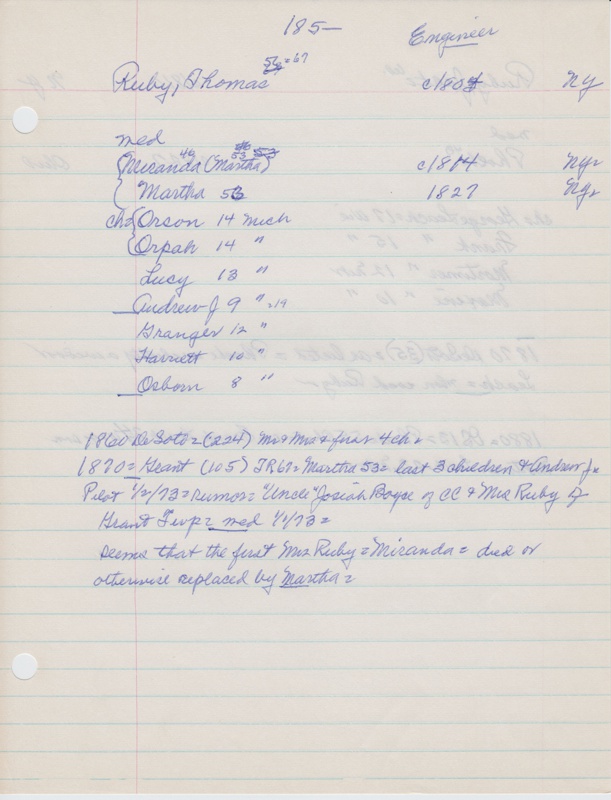 185—
Engineer
Ruby, Thomas 56=67 c/1804 NY
med
Miranda 46 (Martha) 53 c/1814 NYr
Martha 53 1827 NYr
ch= Orson 14 Mich
Orpah 14 "
Lucy 13 "
Andrew J 9 " =19
Granger 12 "
Harriett 10 "
Osborn 8 "
1860 DeSoto = (224) Mr & Mrs & first 4 ch =
1870 = Grant (105) TR 67 = Martha 53 = last 3 children & Andrew J=
Pilot 1/2/73 = rumor = "Uncle" Josiah Boyce of CC & Mrs Ruby of
Grant Twp = med 1/1/73 =
seems that the first Mrs Ruby = Miranda = died or
otherwise replaced by Martha =